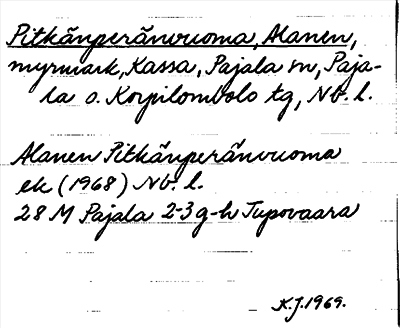 Pitkänperänvuoma, Alanen,
myrmark, Kassa, Pajala sn, Paja-
la o. Korpilombolo tg, Nb. l.
Alanen Pitkänperänvuoma
ek (1968) Nb. l.
28 M Pajala 2-3 g-h Jupovaara
K.J. 1969.